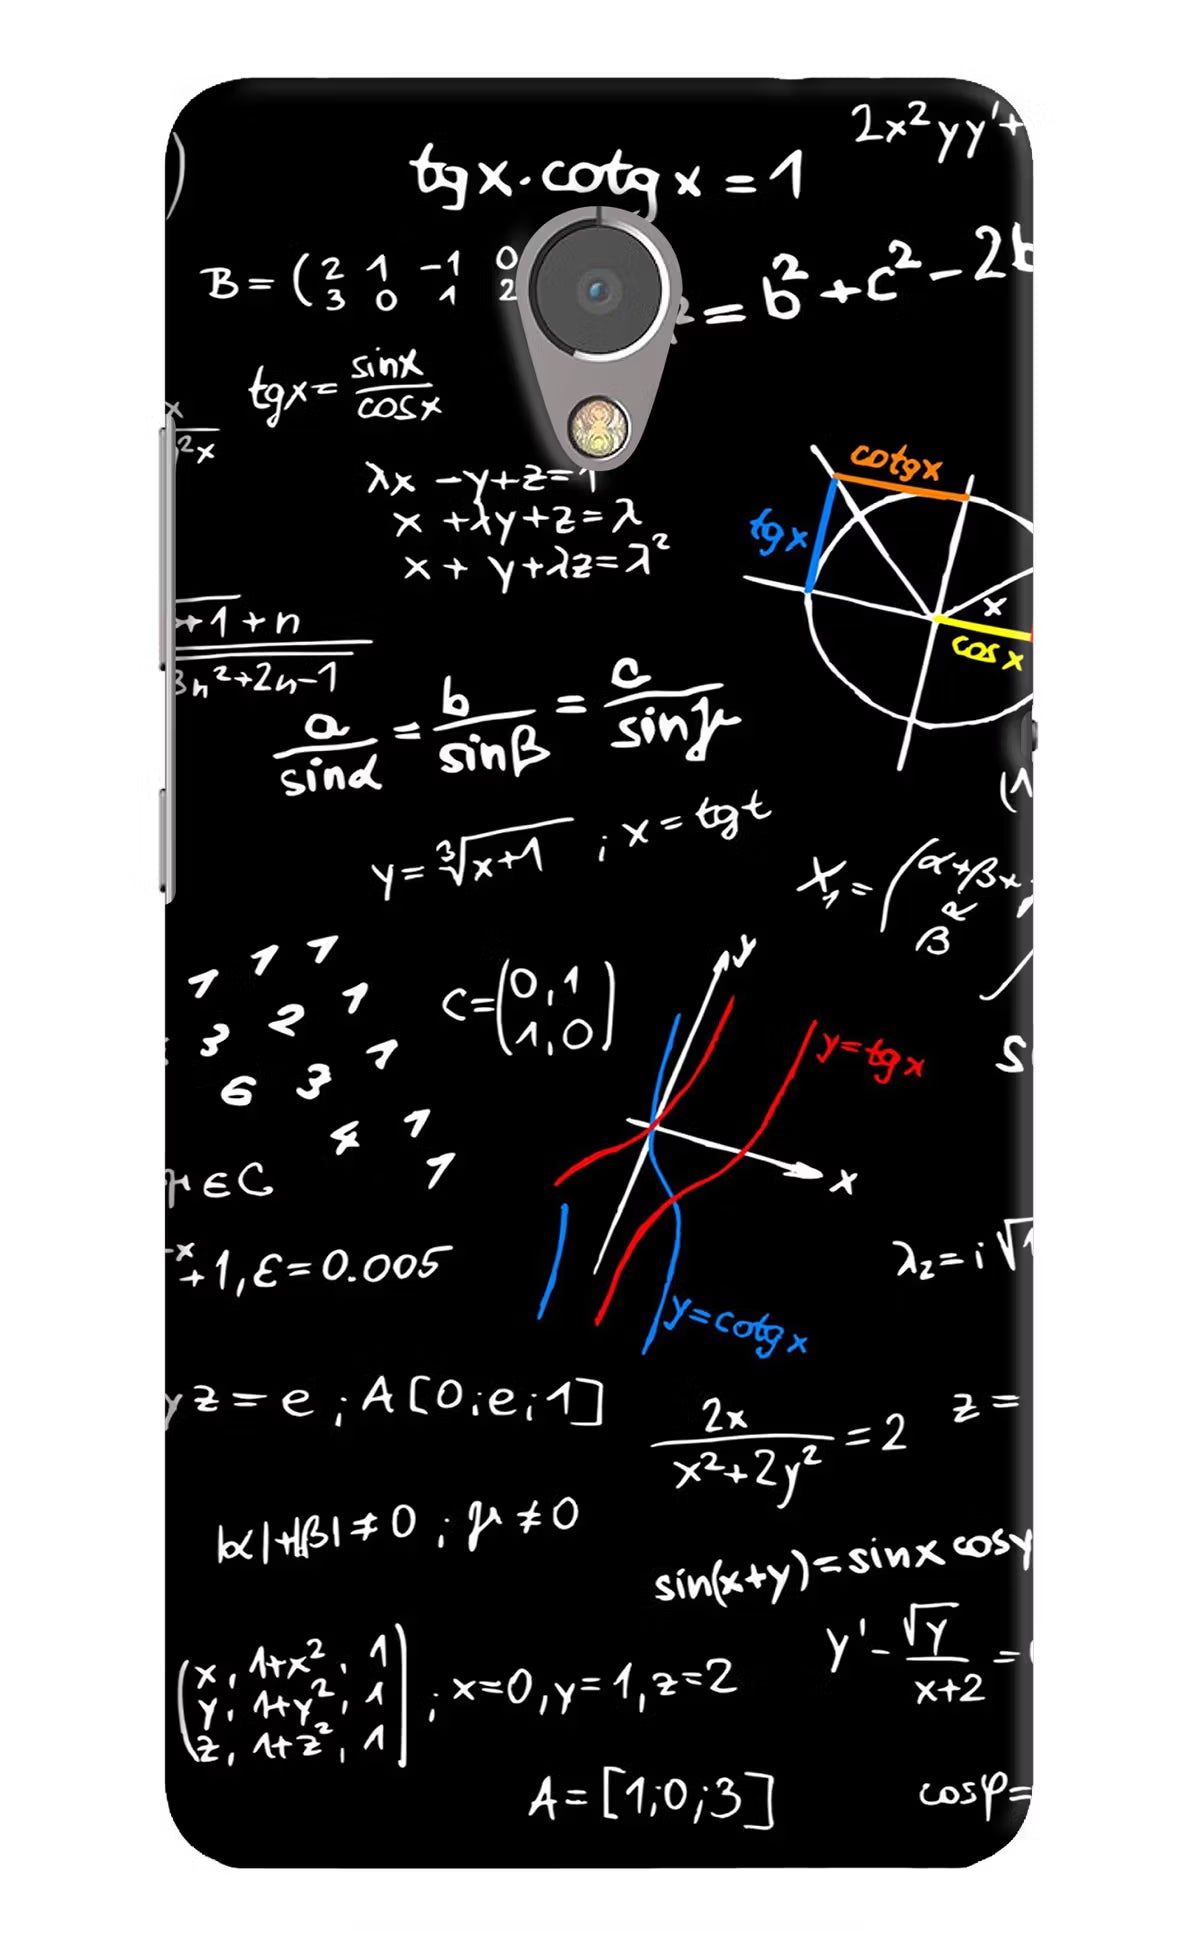 2x²yy'+
tgx·cotgx=1
B=(2 1 -1 0
3 0 1 2
²=b²+c²-2b
tgx=sinx/cosx
x/²x
cotgx
λx-y+z=1
x+λy+z=λ
x+y+λz=λ²
tgx
x
cosx
+1+n
3n²+2n-1
a/sinα=b/sinβ=c/sinγ
y=∛x+1 ; x=tgt
X₁=(α+βx
β R
1 1 1
3 2 1
6 3 1
4 1
1
C=(0,1
1,0)
y
y=tgx
x
y=cotgx
μ∈C
-x+1,ε=0.005
λ₂=i√1
yz=e ; A[0;e;1]
2x/x²+2y²=2
z=
|α|+|β|≠0 ; μ≠0
sin(x+y)=sinx cosy
y'-√y/x+2=
(x, 1+x², 1
y, 1+y², 1
z, 1+z², 1) ; x=0,y=1,z=2
A=[1;0;3]
cosφ=